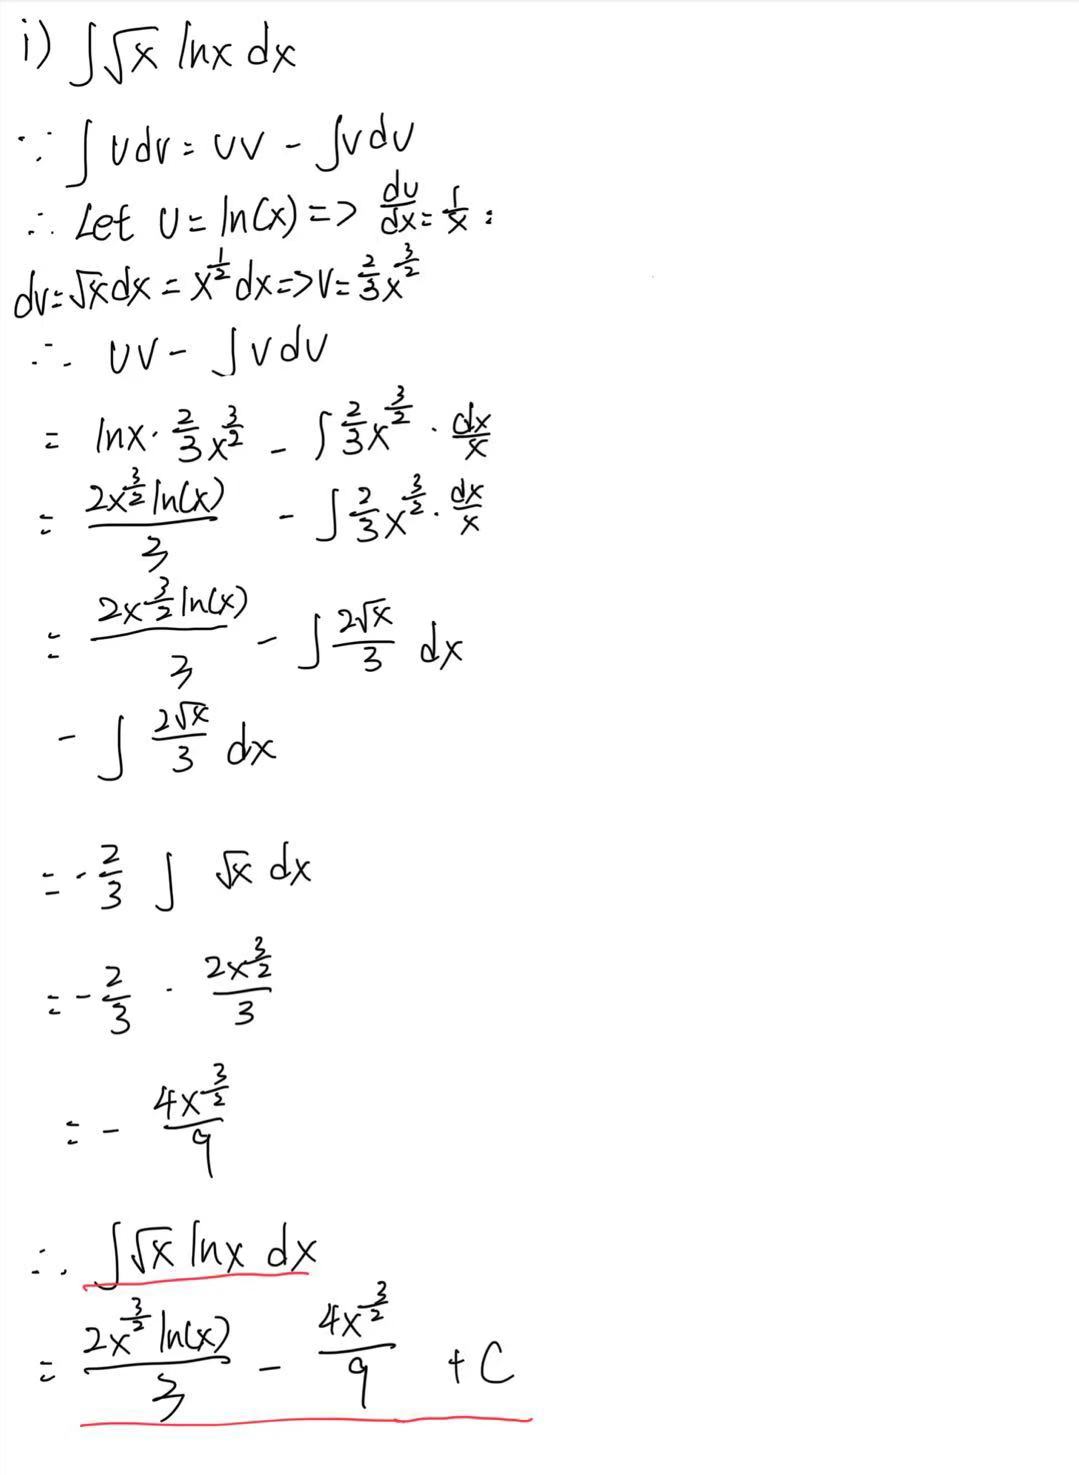 i) ∫√x lnx dx
∵ ∫ udv = uv - ∫vdu
∴ Let u = ln(x) => du/dx = 1/x :
dv = √x dx = x^(1/2) dx => v = 2/3 x^(3/2)
∴ uv - ∫vdu
= lnx · 2/3 x^(3/2) - ∫ 2/3 x^(3/2) · dx/x
= 2x^(3/2) ln(x)/3 - ∫ 2/3 x^(3/2) · dx/x
= 2x^(3/2) ln(x)/3 - ∫ 2√x/3 dx
- ∫ 2√x/3 dx
= - 2/3 ∫ √x dx
= - 2/3 · 2x^(3/2)/3
= - 4x^(3/2)/9
∴ ∫√x lnx dx
= 2x^(3/2) ln(x)/3 - 4x^(3/2)/9 + C